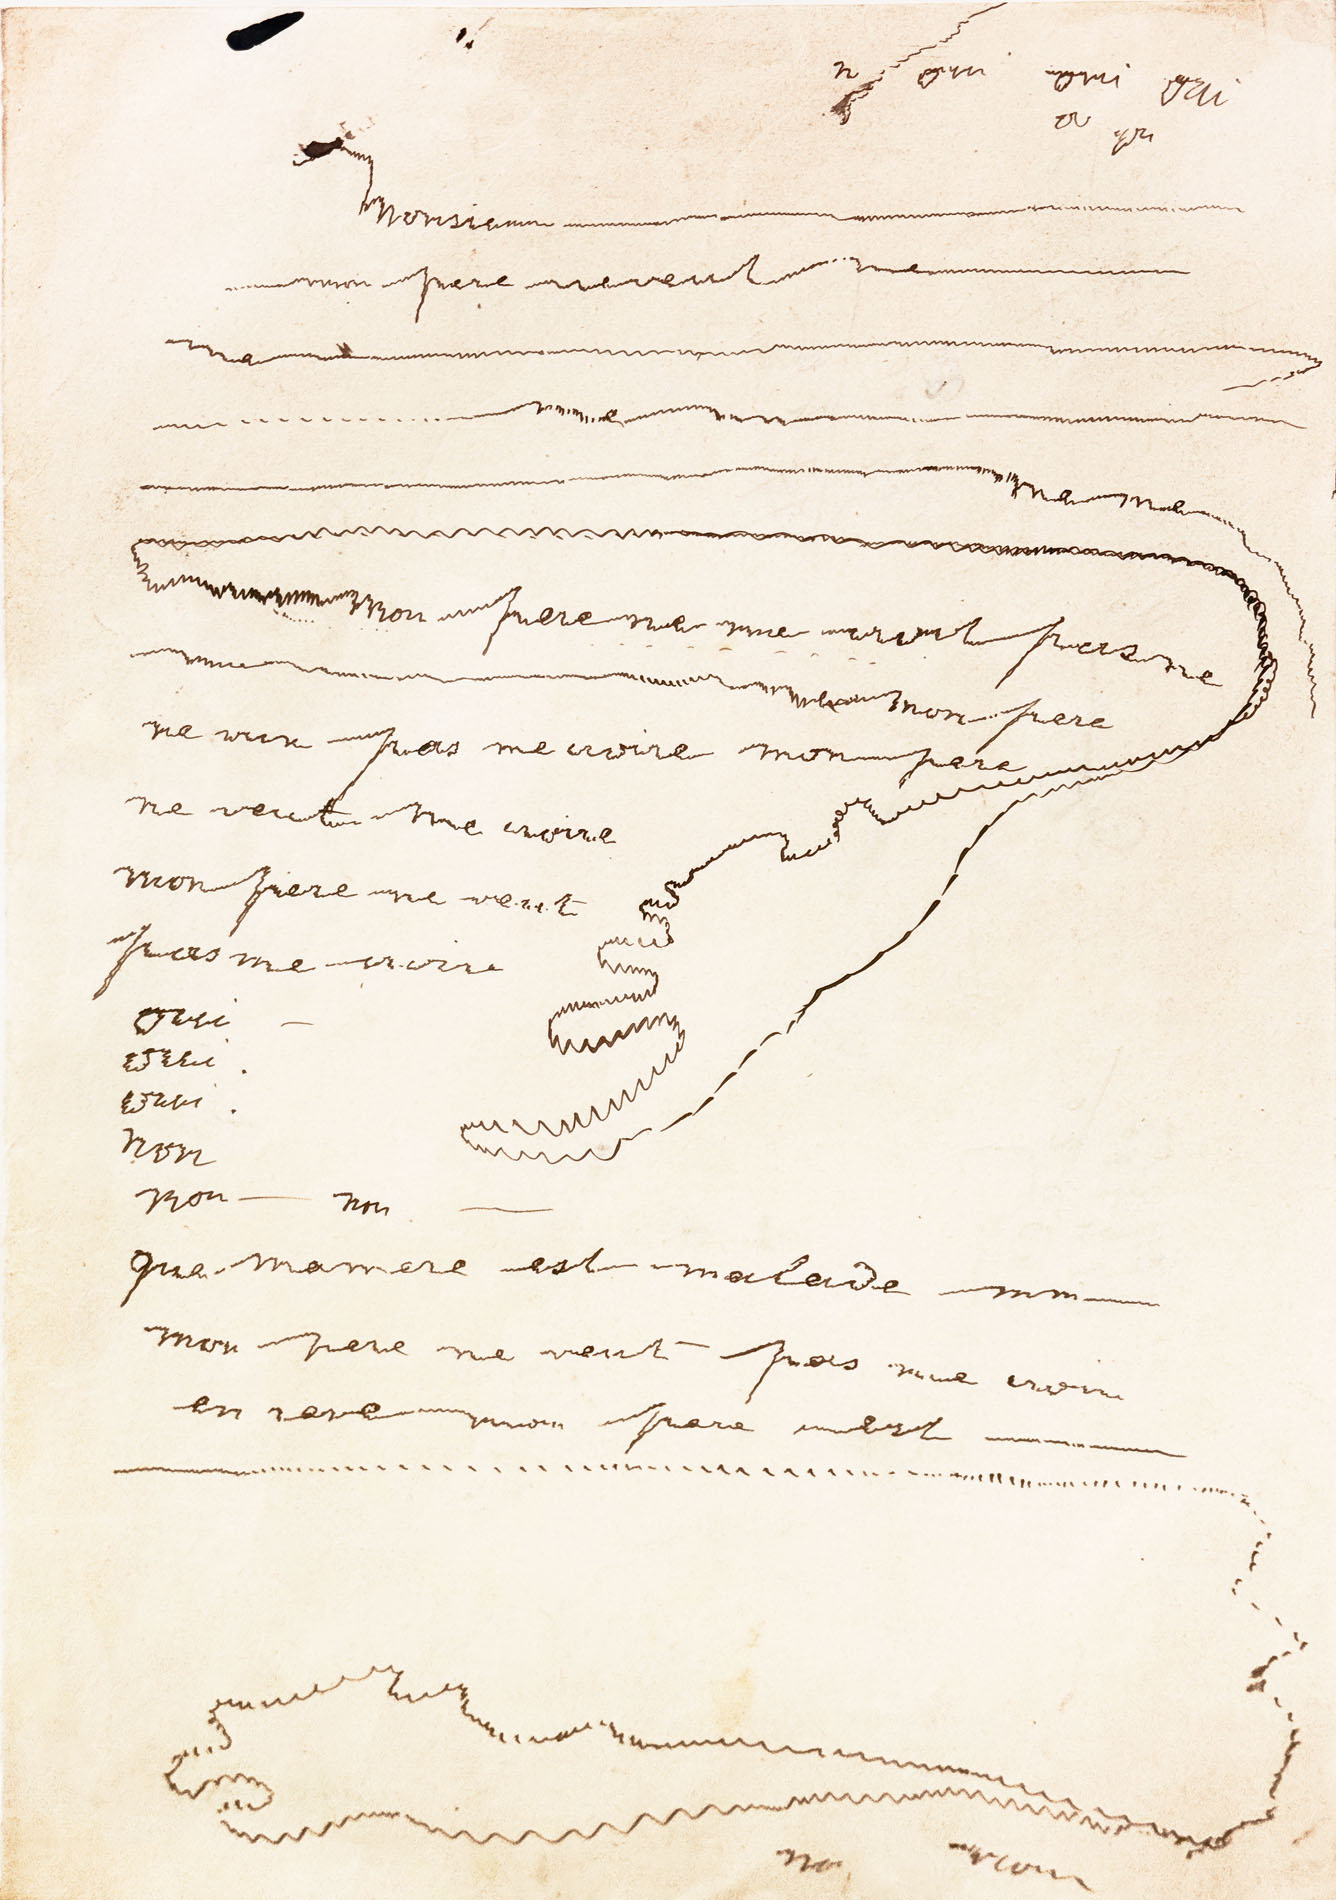 n oui oui oui
oui
Monsieur
mon pere ne veut me
me
me
me me
mon pere ne me croit pas ne
mon pere
ne veu pas me croire mon pere
ne veut me croire
mon pere ne veut
pas me croire
oui
oui
oui
non
non non
que ma mere est malade
mon pere ne veut pas me croire
en reve mon pere
no non